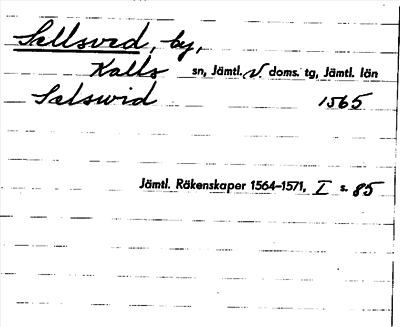 Sällsved, by,
Kalls sn, Jämtl. V. doms. tg, Jämtl. län
Sælswid 1565
Jämtl. Räkenskaper 1564–1571, I s. 85